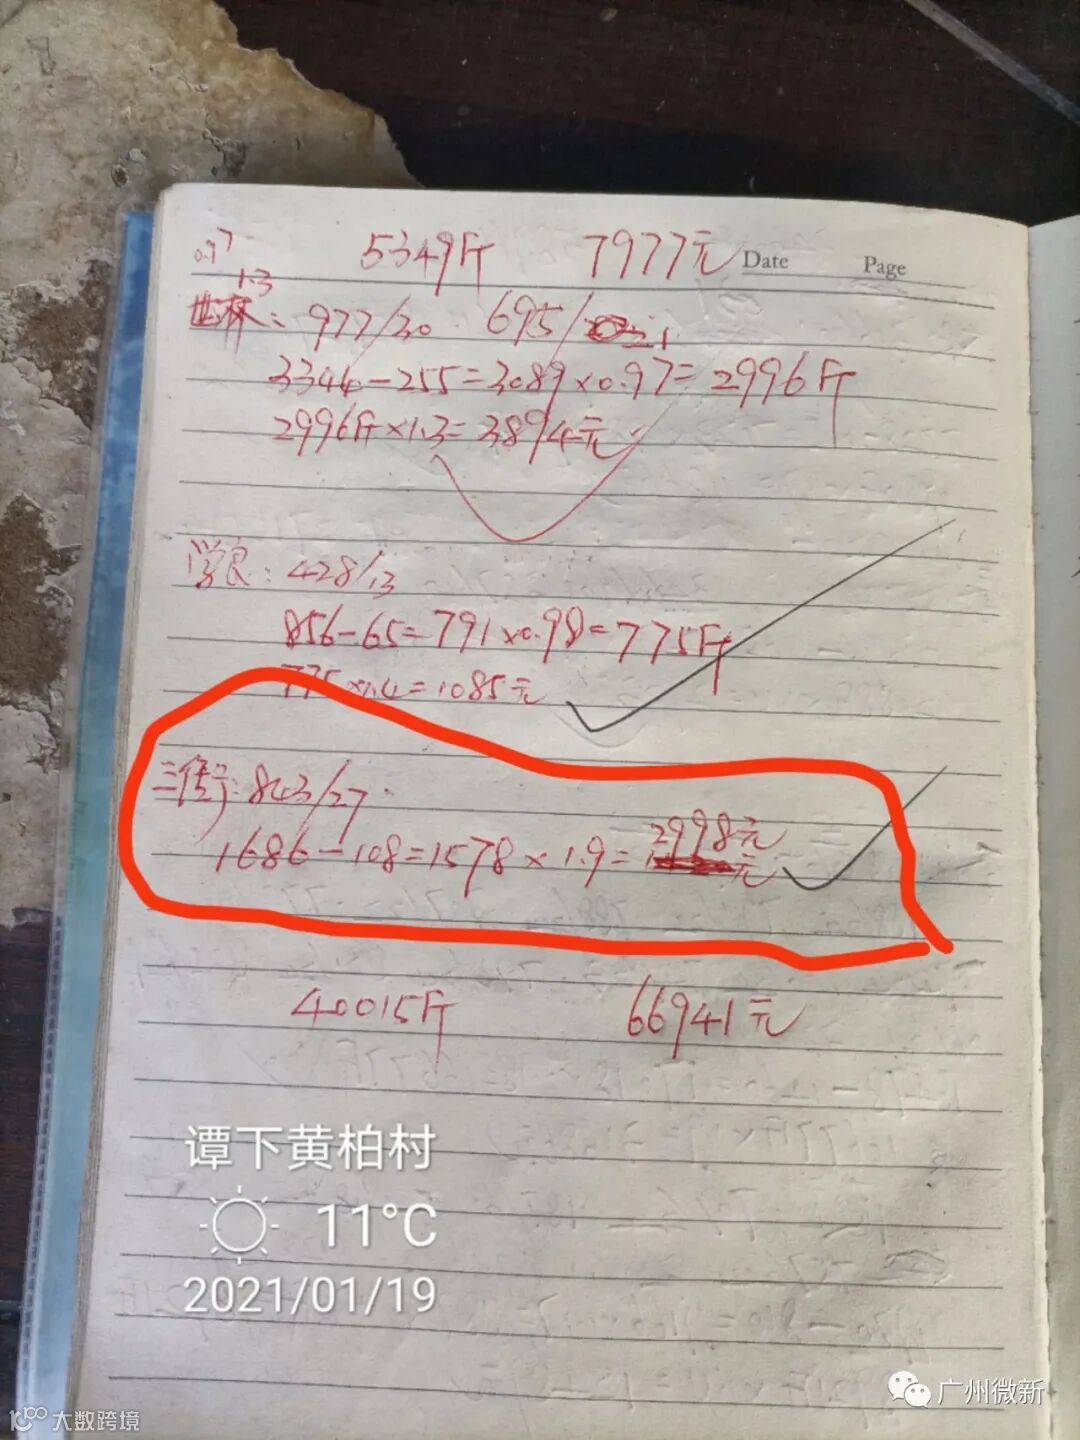 5349斤 7977元 Date Page
0.97
1.3
世林: 977/30 695/21
3344-255=3089×0.97=2996斤
2996斤×1.3=3894元
学良: 428/13
856-65=791×0.98=775斤
775×1.4=1085元
三传号: 843/27
1686-108=1578×1.9=2998元
元
40015斤 66941元
谭下黄柏村
11°C
2021/01/19
广州微新
大数跨境